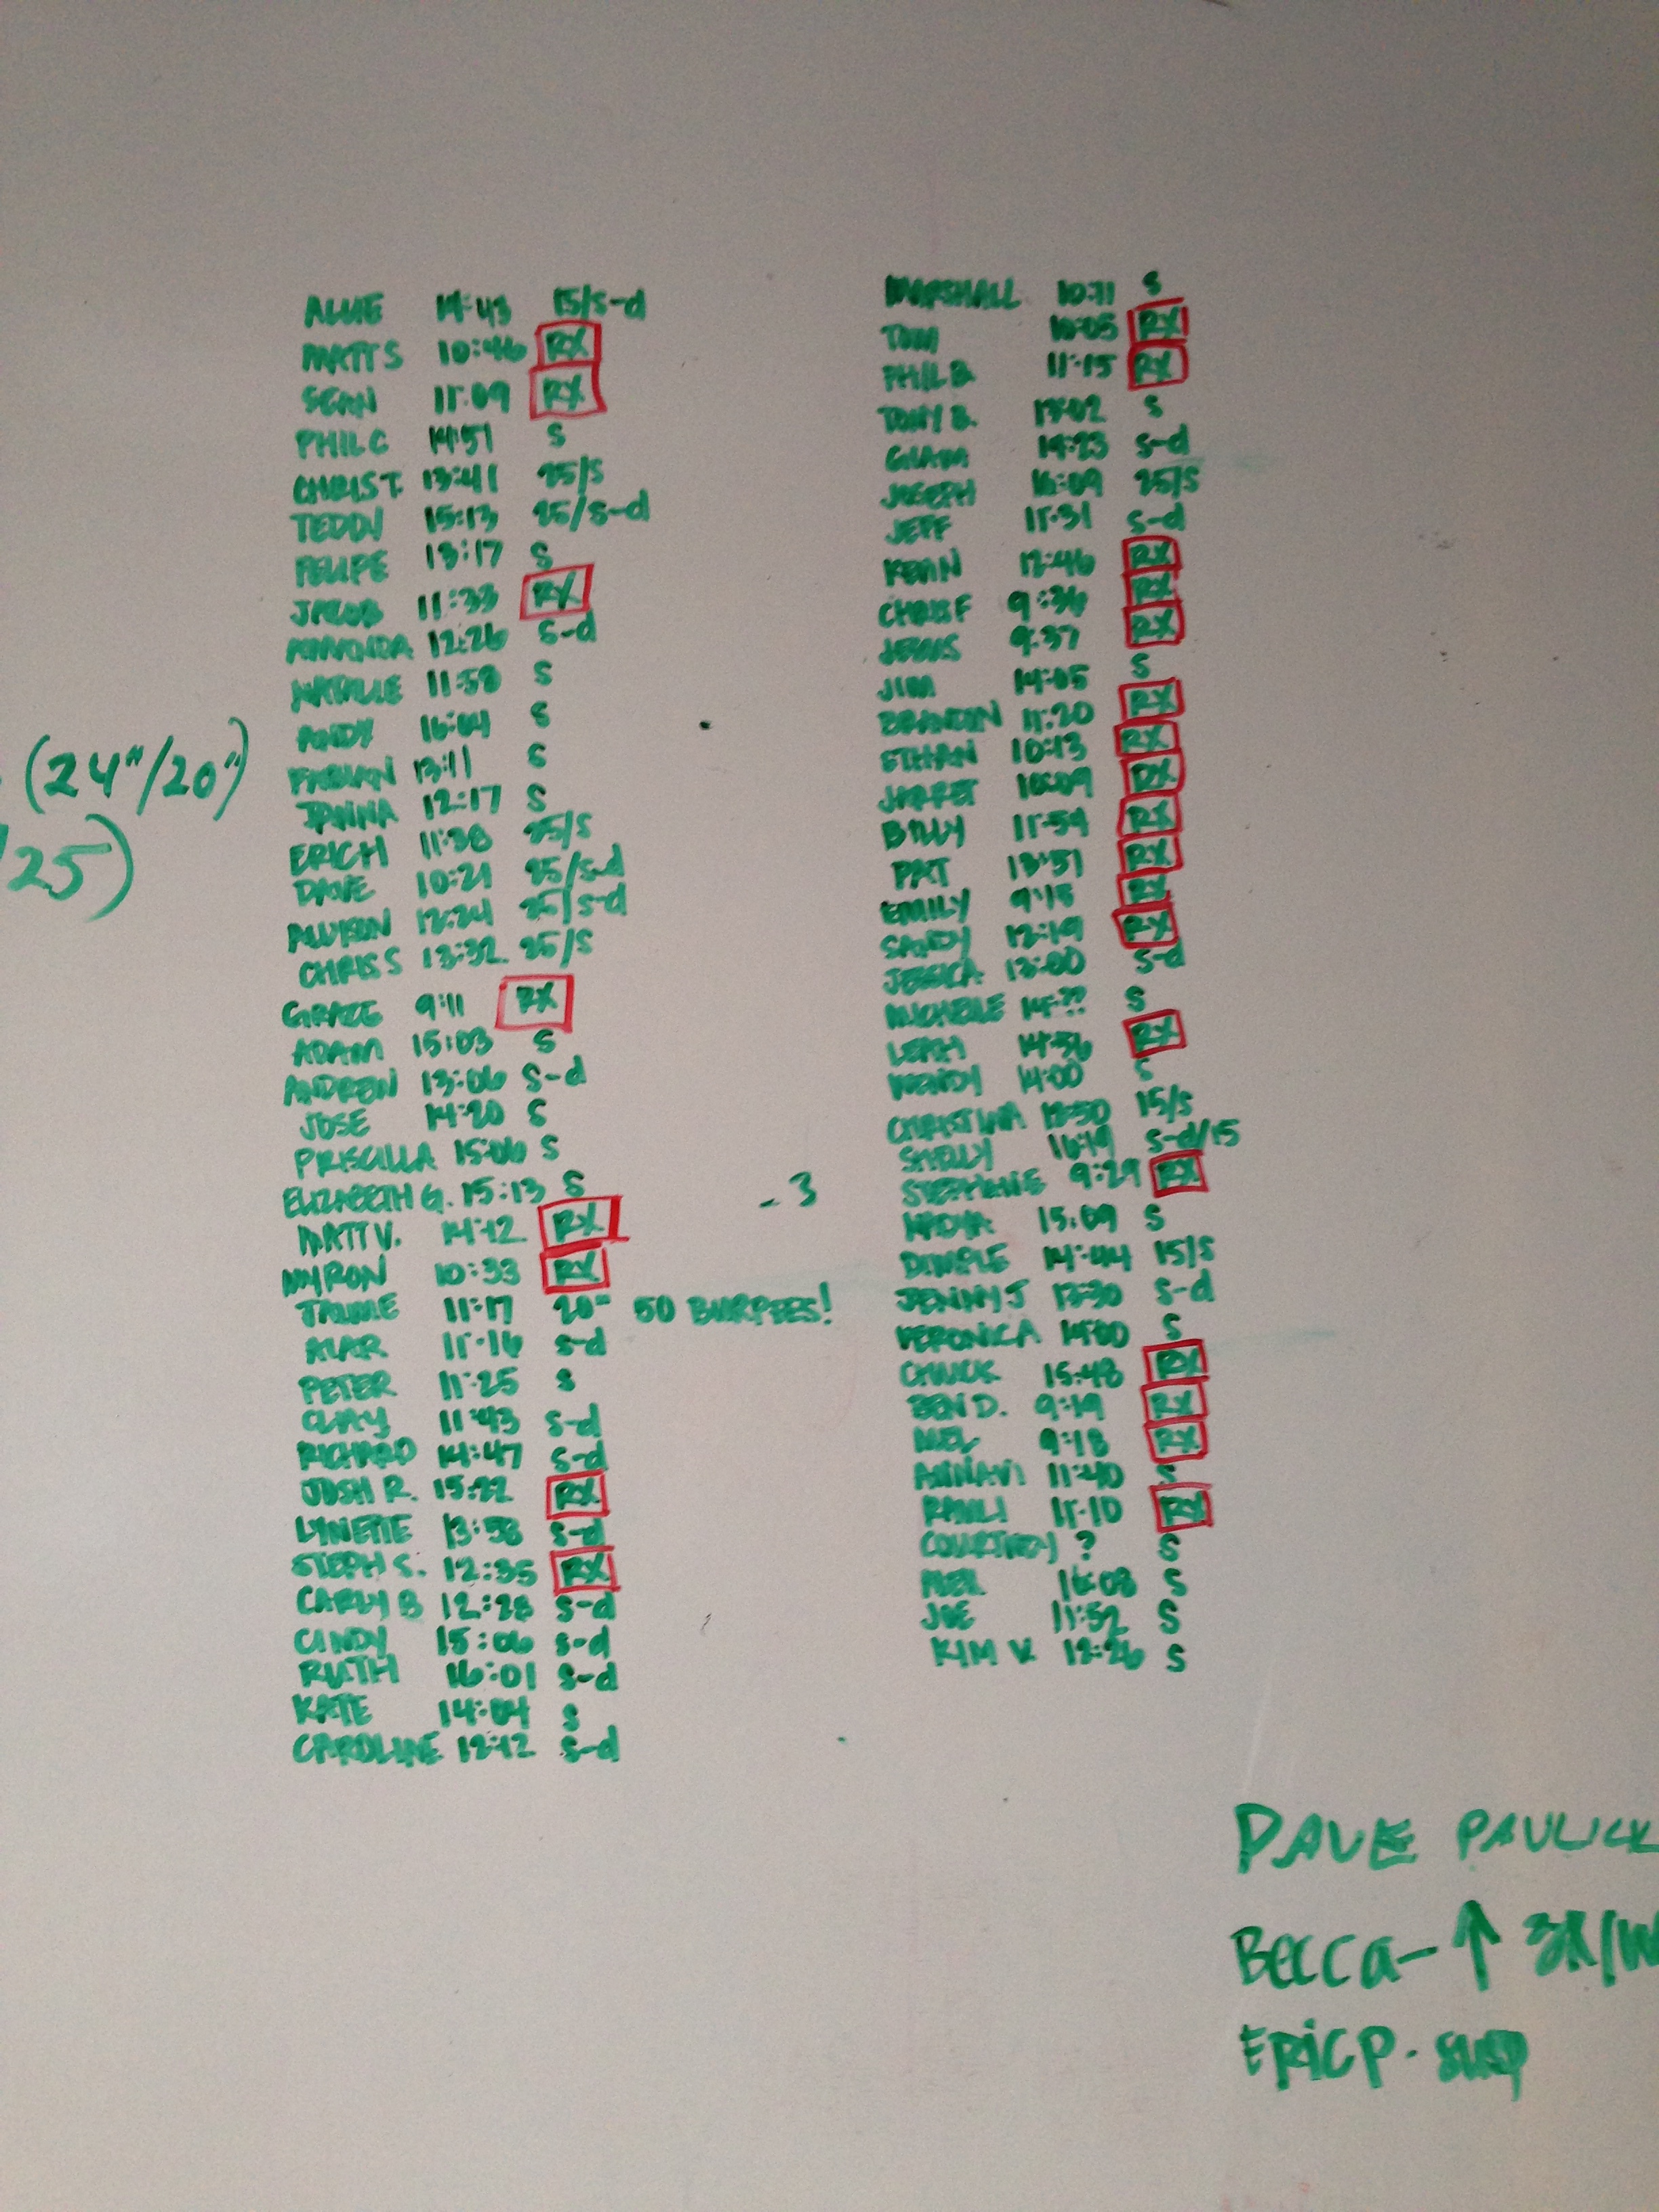 (24"/20")
25)
14:43 15/S-d
MATT S 10:46 RX
SEAN 11:09 RX
PHIL C 14:51 S
CHRIS T. 13:41 25/S
TEDDY 15:13 25/S-d
FELIPE 13:17 S
JACOB 11:33 RX
AMANDA 12:26 S-d
NATALIE 11:58 S
ANDY 16:04 S
FABIAN 13:11 S
JANNA 12:17 S
ERICH 11:38 25/S
DAVE 10:21 25/S-d
12:24 25/S-d
CHRIS S 13:32 25/S
GRACE 9:11 RX
ADAM 15:03 S
ANDREW 13:06 S-d
JOSE 14:20 S
PRISCILLA 15:06 S
ELIZABETH G. 15:13 S
MATT V. 14:12 RX
MYRON 10:33 RX
JAIME 11:17 20" 50 BURPEES!
11:16 S-d
PETER 11:25 S
CLAY 11:43 S-d
RICHARD 14:47 S-d
JOSH R. 15:22 RX
LYNETTE 13:58 S-d
STEPH S. 12:35 RX
CARLY B 12:28 S-d
CINDY 15:06 S-d
RUTH 16:01 S-d
KATE 14:04 S
CAROLINE 12:12 S-d
- 3
MARSHALL 10:11 S
TOM RX
PHIL B. 11:15 RX
TONY B. 13:02 S
14:23 S-d
JOSEPH 16:09 25/S
JEFF 11:31 S-d
12:46 RX
CHRIS F 9:36 RX
JESUS 9:37 RX
JIM 14:05 S
BRANDON 11:20 RX
ETHAN 10:13 RX
JARRET RX
BILLY 11:59 RX
PAT 13:51 RX
EMILY 9:15 RX
SANDY 12:19 RX
JESSICA 13:00 S-d
MICHELLE 14:?? S
LEAH 14:56 RX
WENDY 14:00 S
CHRISTINA 15/S
SHELLY 16:19 S-d/15
STEPHANIE 9:29 RX
NADYA 15:09 S
DIMPLE 14:44 15/S
JENNY J S-d
VERONICA 14:00 S
CHUCK 15:48 RX
BEN D. 9:19 RX
MEL 9:18 RX
11:40 S
11:10 RX
COURTNEY ? S
16:08 S
JOE 11:52 S
KIM V. 12:26 S
DAVE PAULICK
BECCA- ↑ 3X/W
ERIC P. SUSP